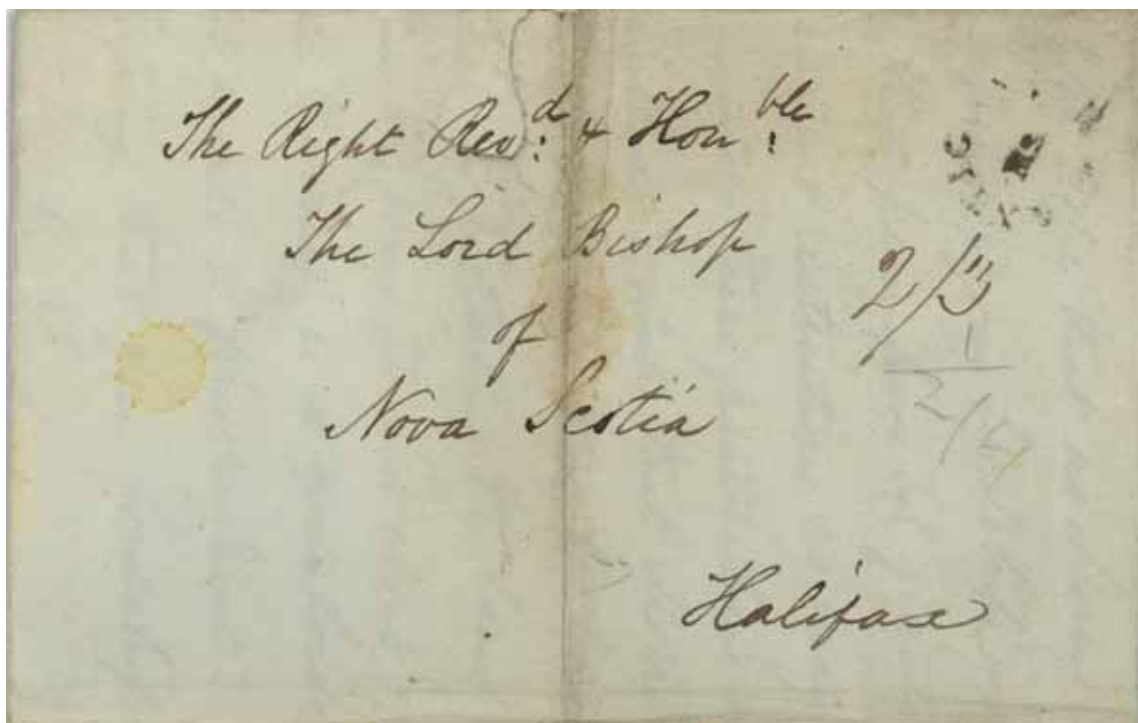 The Right Revd: & Honble:
The Lord Bishop
of
Nova Scotia
Halifax
2/3
1
2/4